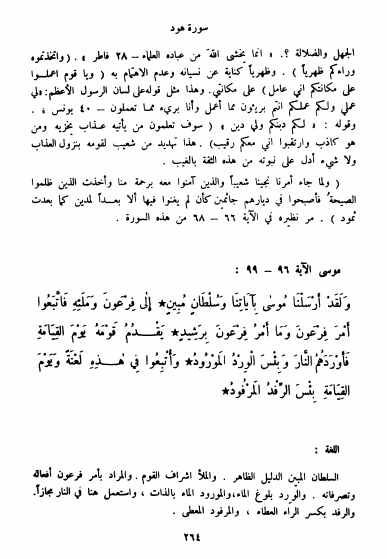 سورة هود
الجهل والضلالة ؟. « انما يخشى اللهَ من عباده العلماء – ٢٨ فاطر » . ( واتخذتموه
وراءكم ظهرياً ) . وظهرياً كناية عن نسيانه وعدم الاهتمام به ( ويا قوم اعملوا
على مكانتكم اني عامل ) على مكانتي. وهذا مثل قوله على لسان الرسول الأعظم: «لي
عملي ولكم عملكم انتم بريئون مما أعمل وأنا بريء مما تعملون – ٤٠ يونس » .
وقوله : « لكم دينكم ولي دين » ( سوف تعلمون من يأتيه عذاب يخزيه ومن
هو كاذب وارتقبوا اني معكم رقيب ) . هذا تهديد من شعيب لقومه بنزول العذاب
ولا شيء أدل على نبوته من هذه الثقة بالغيب .
( ولما جاء أمرنا نجينا شعيباً والذين آمنوا معه برحمة منا وأخذت الذين ظلموا
الصيحة فأصبحوا في ديارهم جاثمين كأن لم يغنوا فيها ألا بعداً لمدين كما بعدت
ثمود ) . مر نظيره في الآية ٦٦ – ٦٨ من هذه السورة .
موسى الآية ٩٦ – ٩٩ :
وَلَقَدْ أَرْسَلْنَا مُوسَى بِآيَاتِنَا وَسُلْطَانٍ مُبِينٍ★ إِلَى فِرْعَوْنَ وَمَلَئِهِ فَاتَّبَعُوا
أَمْرَ فِرْعَوْنَ وَمَا أَمْرُ فِرْعَوْنَ بِرَشِيدٍ★ يَقْدُمُ قَوْمَهُ يَوْمَ الْقِيَامَةِ
فَأَوْرَدَهُمُ النَّارَ وَبِئْسَ الْوِرْدُ الْمَوْرُودُ★ وَأُتْبِعُوا فِي هٰذِهِ لَعْنَةً وَيَوْمَ
الْقِيَامَةِ بِئْسَ الرِّفْدُ الْمَرْفُودُ★
اللغة :
السلطان المبين الدليل الظاهر . والملأ اشراف القوم . والمراد بأمر فرعون أفعاله
وتصرفاته . والوِرد بلوغ الماء، والمورود الماء بالذات ، واستعمل هنا في النار مجازاً.
والرفد بكسر الراء العطاء ، والمرفود المعطى .
٢٦٤